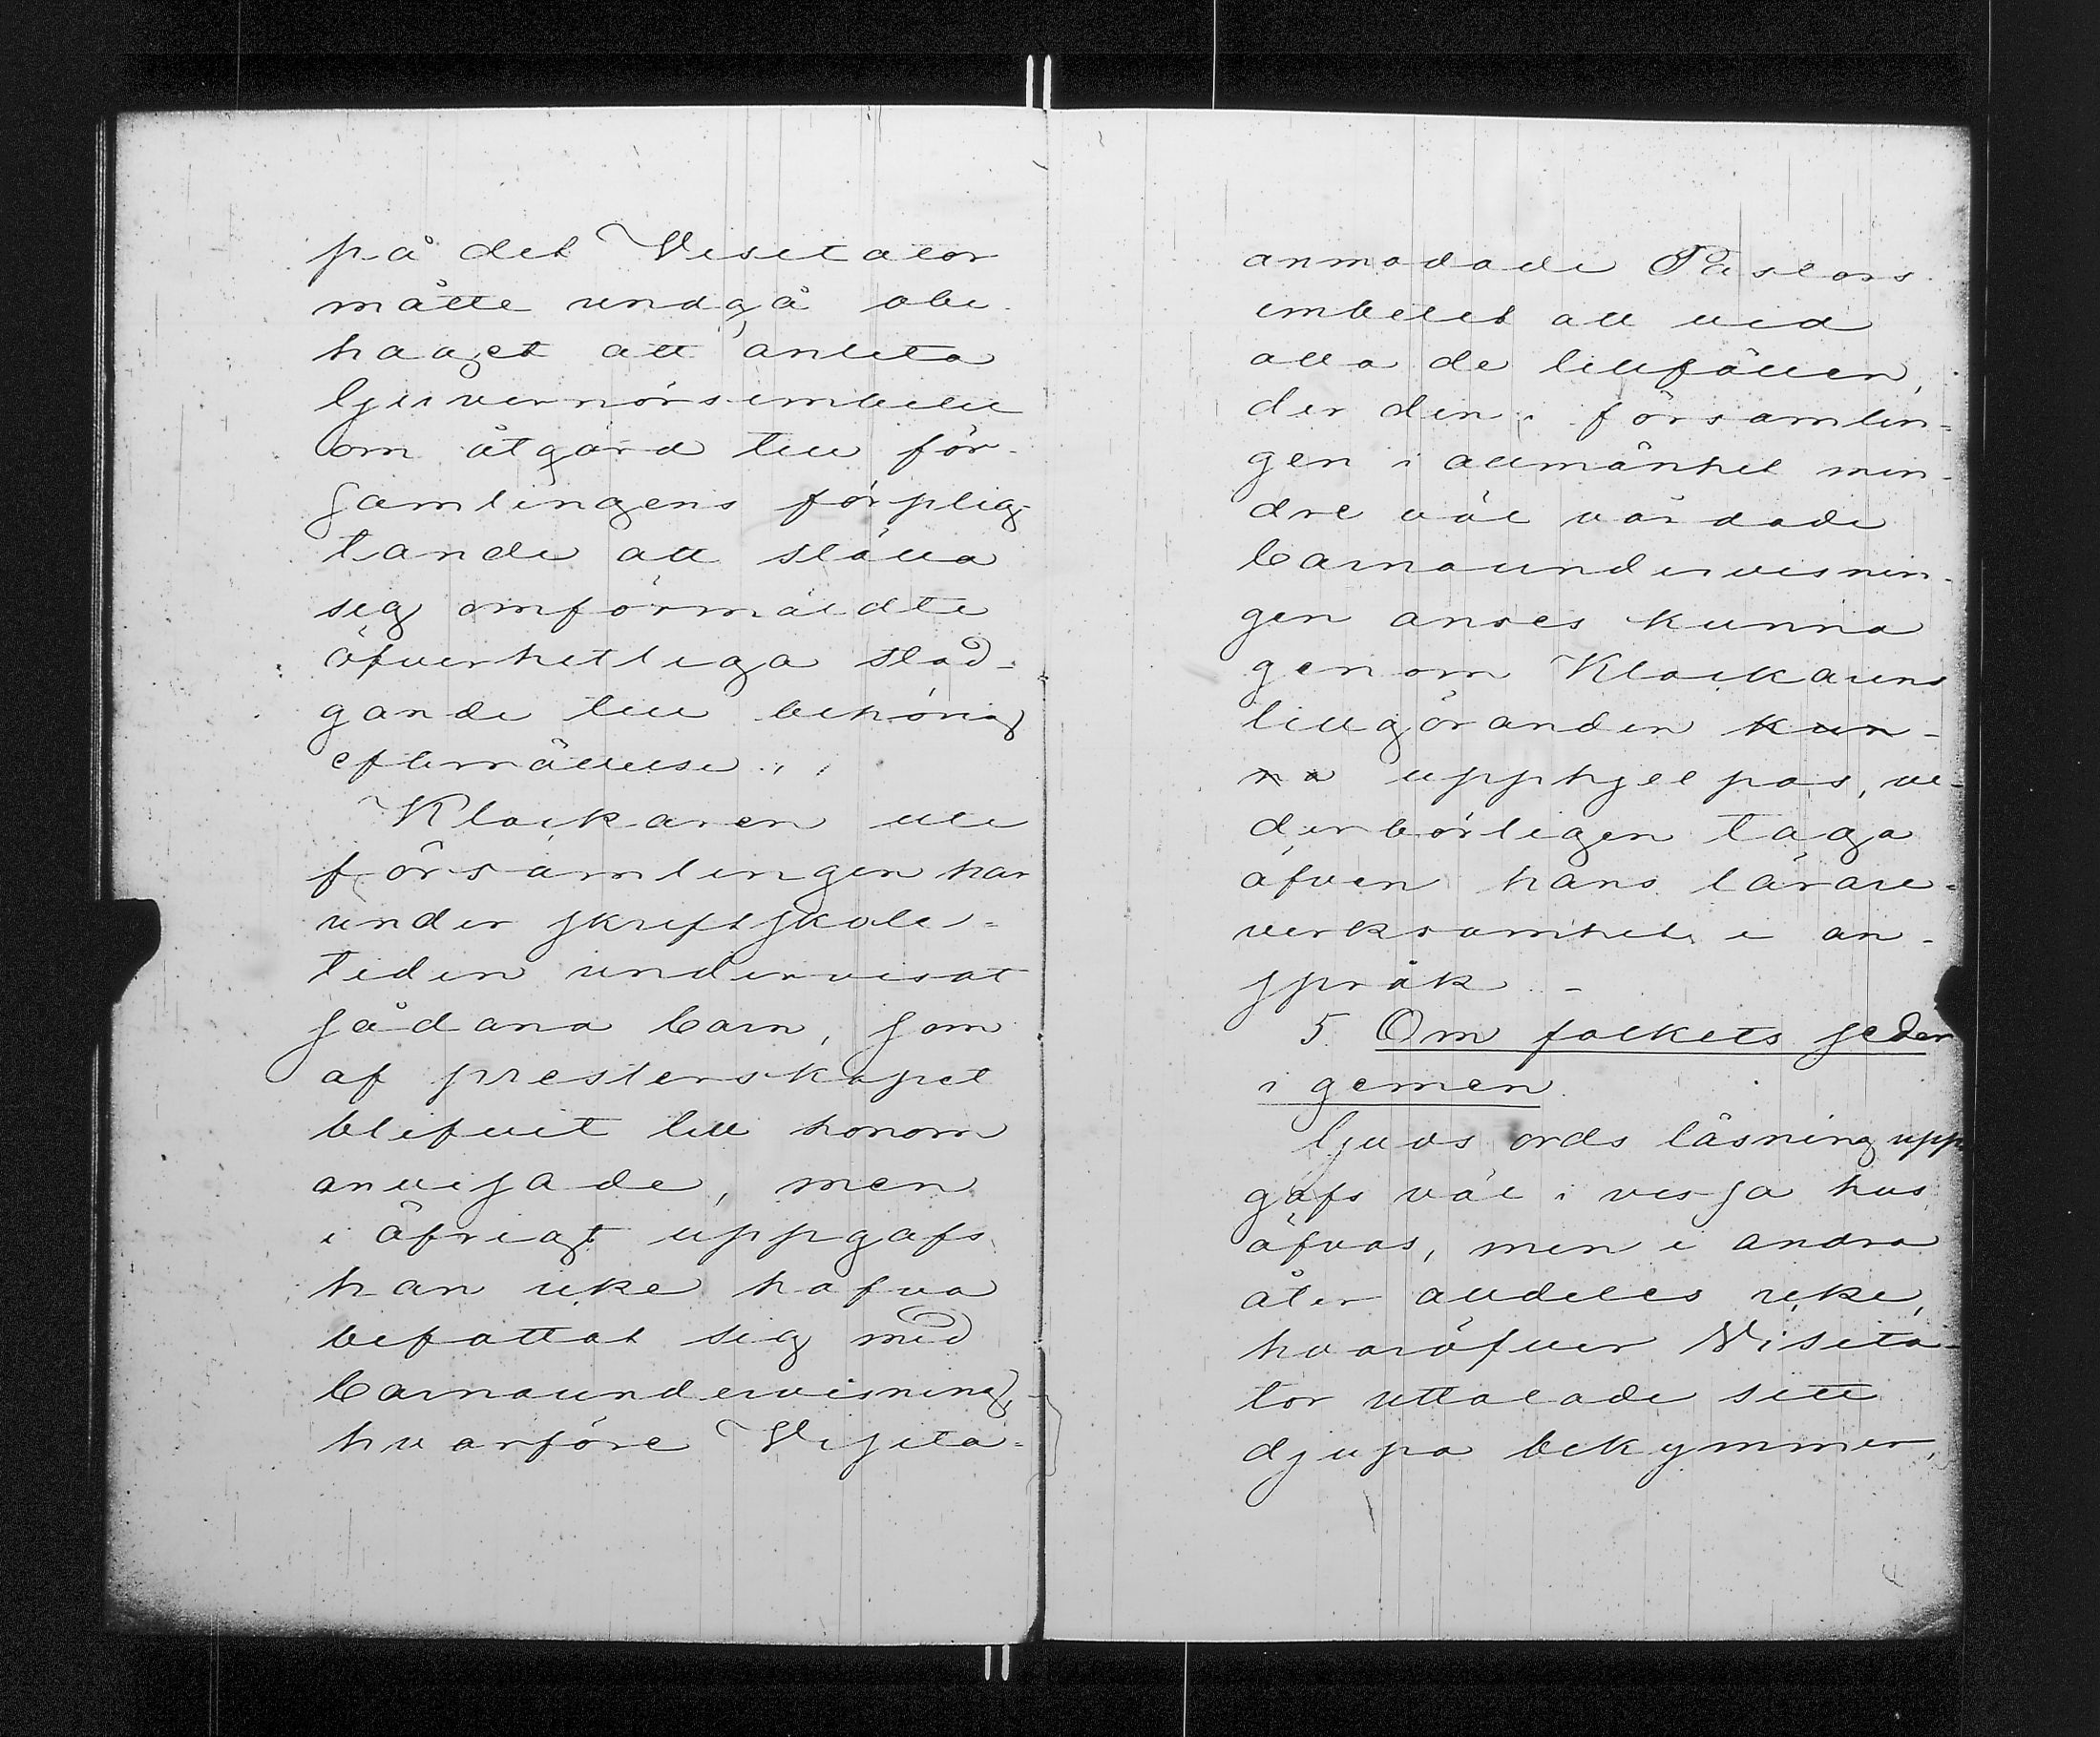 på det Visitator
måtte undgå obe-
haget att anlita
Guvernörsembetet
om åtgärd till för-
samlingens förplig-
tande att ställa
sig omförmäldte
öfverhetliga stad-
gande till behörig
efterrättelse.
Klockaren uti
församlingen har
under skriftskole-
tiden undervisat
sådana barn, som
af presterskapet
blifvit till honom
anvisade, men
i öfrigt uppgafs
han icke hafva
befattat sig med
barnaundervisning,
hvarföre Visita-
anmodade Pastors
embetet att vid
alla de tillfällen,
der den i församlin-
gen i allmänhet min-
dre väl vårdade
barnaundervisnin-
gen anses kunna
genom Klockarens
tillgöranden kun-
na upphjelpas, ve-
derbörligen taga
äfven hans lärare-
verksamhet i an-
språk. -
5. Om folkets seder
i gemen.
Guds ords läsning upp-
gafs väl i vissa hus
öfvas, men i andra
åter alldeles icke,
hvaröfver Visita-
tor uttalade sitt
djupa bekymmer,